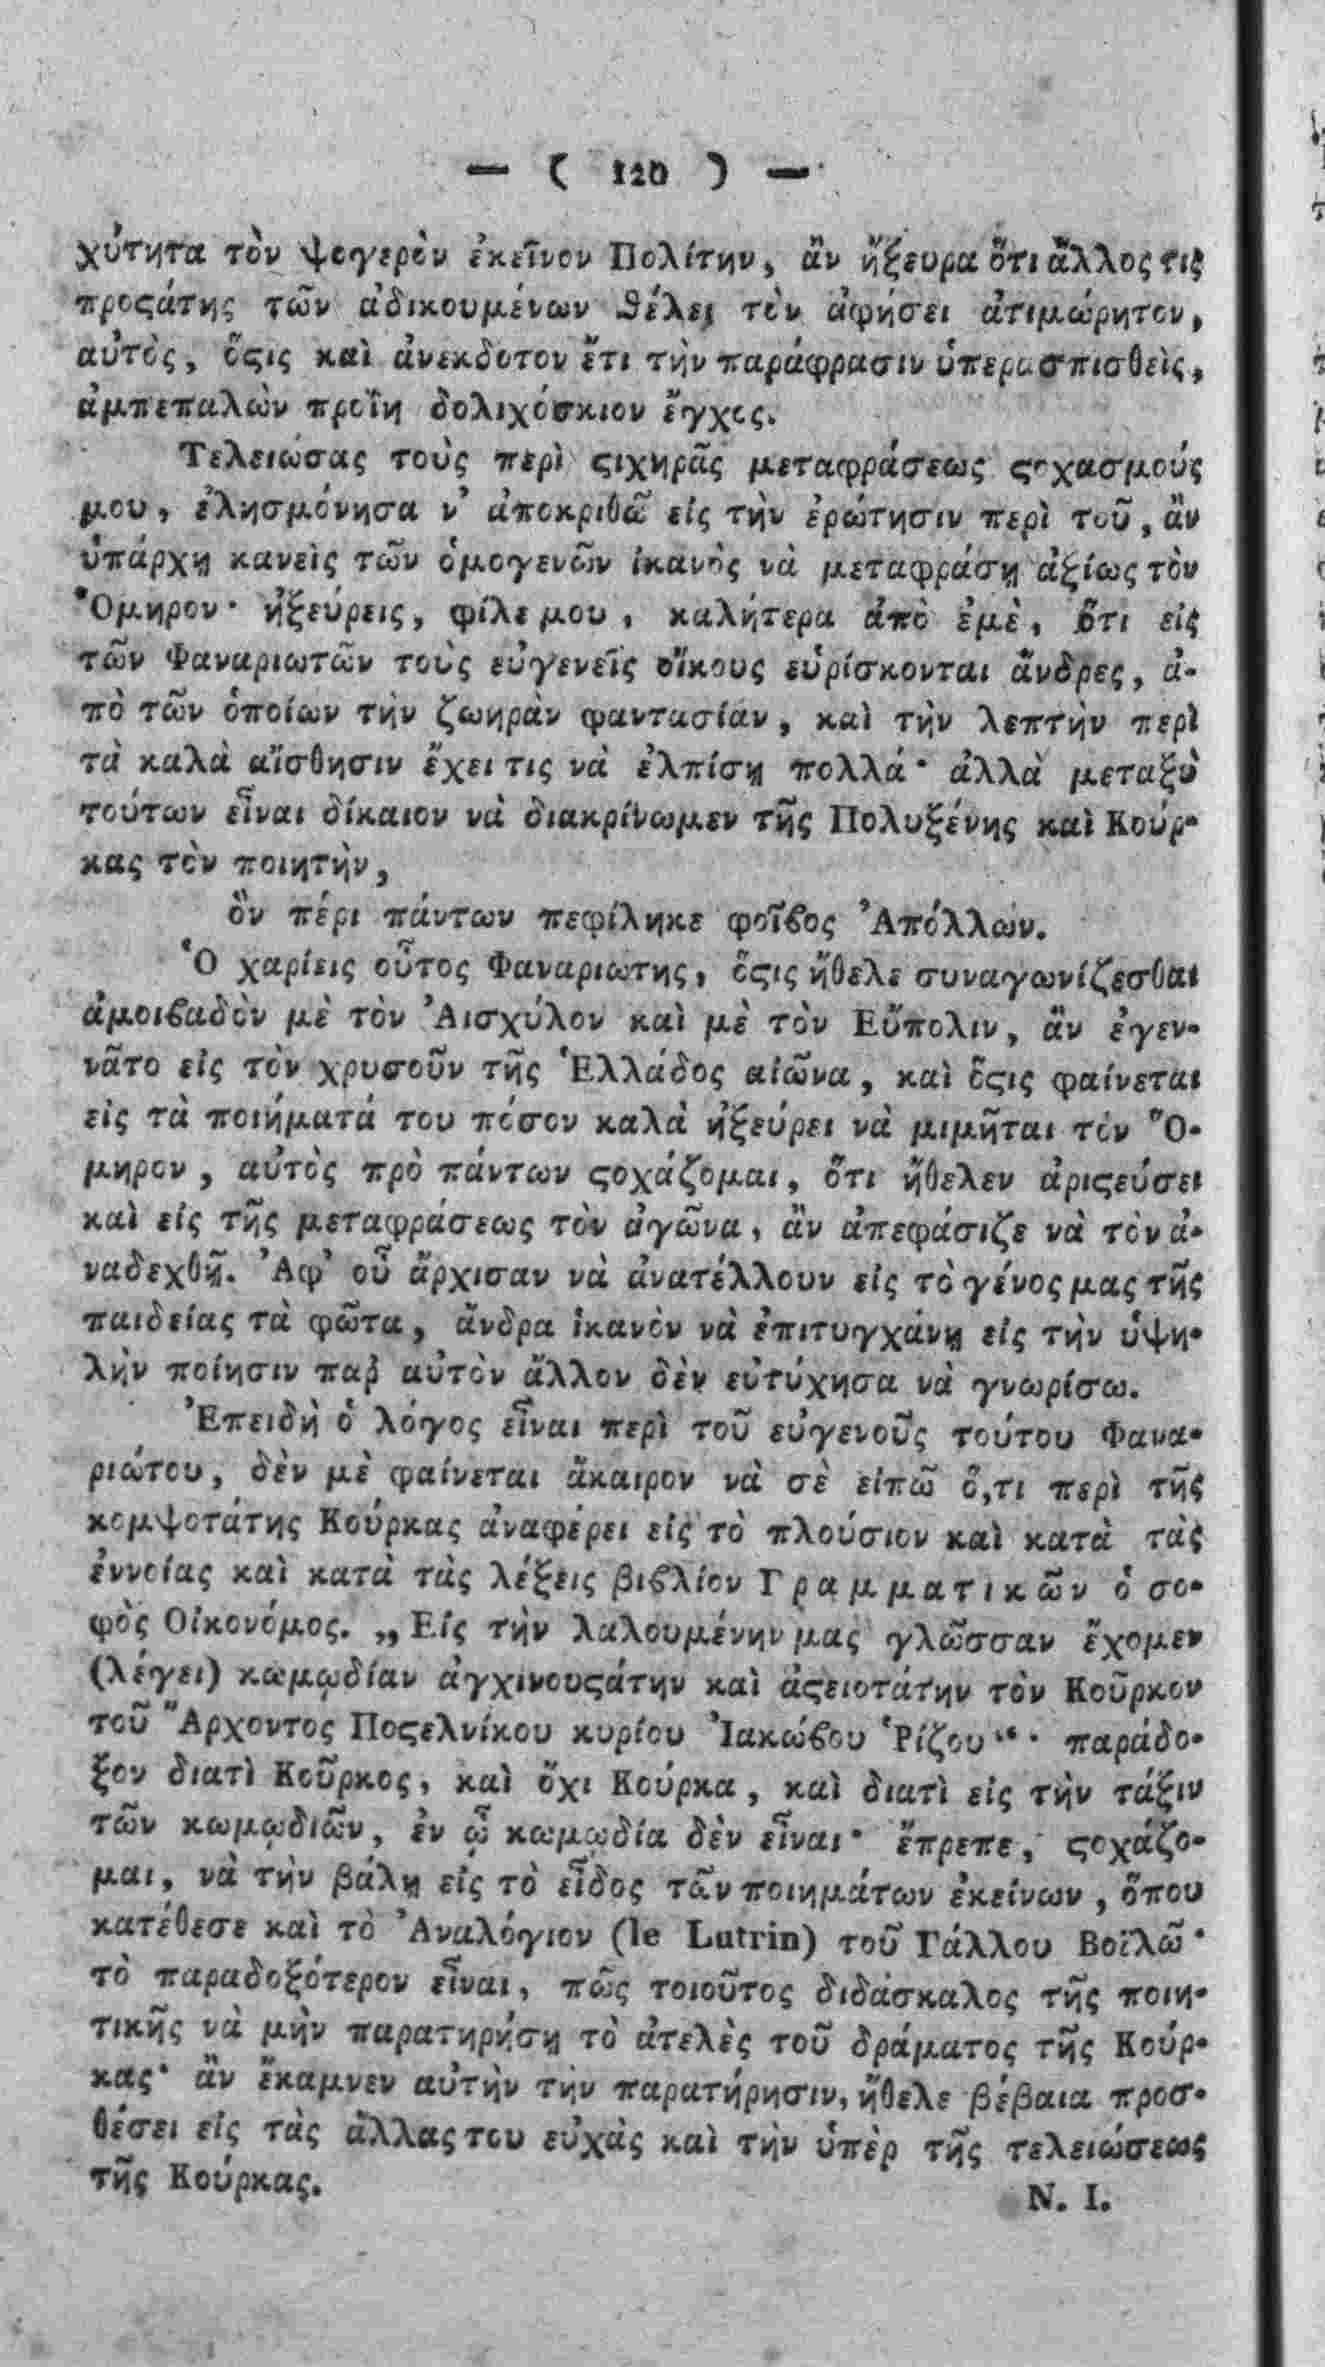 — ( 120 ) —
χύτητα τὸν ψογερὸν ἐκεῖνον Πολίτην, ἂν ἤξευρα ὅτι ἄλλος τις
προϛάτης τῶν ἀδικουμένων θέλει τὸν ἀφήσει ἀτιμώρητον,
αὐτὸς, ὅϛις καὶ ἀνεκδοτον ἔτι τὴν παράφρασιν ὑπερασπισθεὶς,
ἀμπεπαλὼν προΐη δολιχόσκιον ἔγχος.
Τελειώσας τοὺς περὶ ϛιχηρᾶς μεταφράσεως ϛοχασμούς
μου, ἐλησμόνησα ν' ἀποκριθῶ εἰς τὴν ἐρώτησιν περὶ τοῦ, ἂν
ὑπάρχῃ κανεὶς τῶν ὁμογενῶν ἱκανὸς νὰ μεταφράσῃ ἀξίως τὸν
Ὅμηρον· ἠξεύρεις, φίλε μου, καλήτερα ἀπὸ ἐμὲ, ὅτι εἰς
τῶν Φαναριωτῶν τοὺς εὐγενεῖς οἴκους εὑρίσκονται ἄνδρες, ἀ-
πὸ τῶν ὁποίων τὴν ζωηρὰν φαντασίαν, καὶ τὴν λεπτὴν περὶ
τὰ καλὰ αἴσθησιν ἔχει τις νὰ ἐλπίσῃ πολλά· ἀλλὰ μεταξὺ
τούτων εἶναι δίκαιον νὰ διακρίνωμεν τῆς Πολυξένης καὶ Κούρ-
κας τὸν ποιητὴν,
ὃν πέρι πάντων πεφίληκε φοῖϐος Ἀπόλλων.
Ὁ χαρίεις οὗτος Φαναριωτης, ὅϛις ἤθελε συναγωνίζεσθαι
ἀμοιϐαδὸν μὲ τὸν Ἀισχύλον καὶ μὲ τὸν Εὔπολιν, ἂν ἐγεν-
νᾶτο εἰς τὸν χρυσοῦν τῆς Ἑλλάδος αἰῶνα, καὶ ὅϛις φαίνεται
εἰς τὰ ποιήματά του πόσον καλὰ ἠξεύρει νὰ μιμῆται τὸν Ὅ-
μηρον, αὐτὸς πρὸ πάντων ϛοχάζομαι, ὅτι ἤθελεν ἀριϛεύσει
καὶ εἰς τῆς μεταφράσεως τὸν ἀγῶνα, ἂν ἀπεφάσιζε νὰ τὸν ἀ-
ναδεχθῇ. Ἀφ' οὗ ἄρχισαν νὰ ἀνατέλλουν εἰς τὸ γένος μας τῆς
παιδείας τὰ φῶτα, ἄνδρα ἱκανὸν νὰ ἐπιτυγχάνῃ εἰς τὴν ὑψη-
λὴν ποίησιν παρ' αὐτὸν ἄλλον δὲν εὐτύχησα νὰ γνωρίσω.
Ἐπειδὴ ὁ λόγος εἶναι περὶ τοῦ εὐγενοῦς τούτου Φανα-
ριώτου, δὲν μὲ φαίνεται ἄκαιρον νὰ σὲ εἰπῶ ὅ,τι περὶ τῆς
κομψοτάτης Κούρκας ἀναφέρει εἰς τὸ πλούσιον καὶ κατὰ τὰς
ἐννοίας καὶ κατὰ τὰς λέξεις βιϐλίον Γραμματικῶν ὁ σο-
φὸς Οἰκονόμος. „Εἰς τὴν λαλουμένην μας γλῶσσαν ἔχομεν
(λέγει) κωμῳδίαν ἀγχινουϛάτην καὶ ἀϛειοτάτην τὸν Κοῦρκον
τοῦ Ἄρχοντος Ποϛελνίκου κυρίου Ἰακώϐου Ῥίζου“· παράδο-
ξον διατὶ Κοῦρκος, καὶ ὄχι Κούρκα, καὶ διατὶ εἰς τὴν τάξιν
τῶν κωμῳδιῶν, ἐν ᾧ κωμῳδία δὲν εἶναι· ἔπρεπε, ϛοχάζο-
μαι, νὰ τὴν βάλῃ εἰς τὸ εἶδος τῶν ποιημάτων ἐκείνων, ὅπου
κατέθεσε καὶ τὸ Ἀναλόγιον (le Lutrin) τοῦ Γάλλου Βοϊλῶ·
τὸ παραδοξότερον εἶναι, πῶς τοιοῦτος διδάσκαλος τῆς ποιη-
τικῆς νὰ μὴν παρατηρήσῃ τὸ ἀτελὲς τοῦ δράματος τῆς Κούρ-
κας· ἂν ἔκαμνεν αὐτὴν τὴν παρατήρησιν, ἤθελε βέβαια προσ-
θέσει εἰς τὰς ἄλλας του εὐχὰς καὶ τὴν ὑπὲρ τῆς τελειώσεως
τῆς Κούρκας.
Ν. Ι.